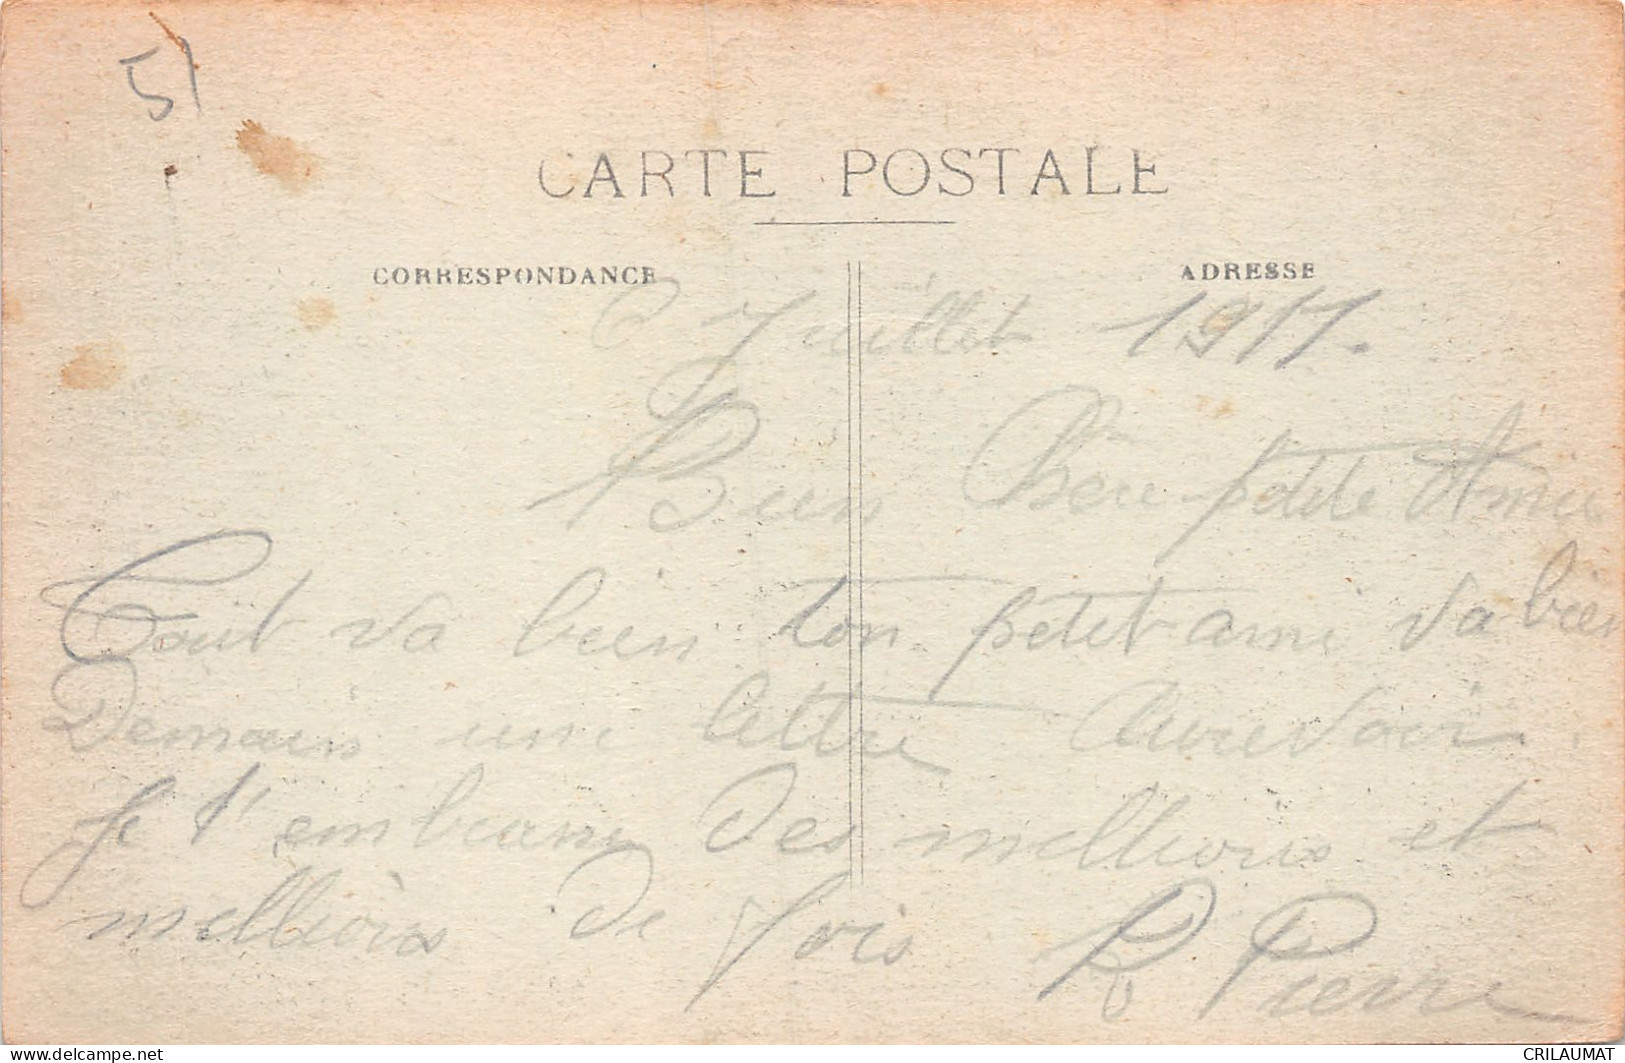 51
CARTE POSTALE
CORRESPONDANCE
ADRESSE
Juillet 1917.
Bien Chère petite Amie
Tout va bien ton petit ami va bien
Demain une lettre Aurevoir.
Je t'embrasse des millions et
millions de fois
Pierre
www.delcampe.net
CRILAUMAT